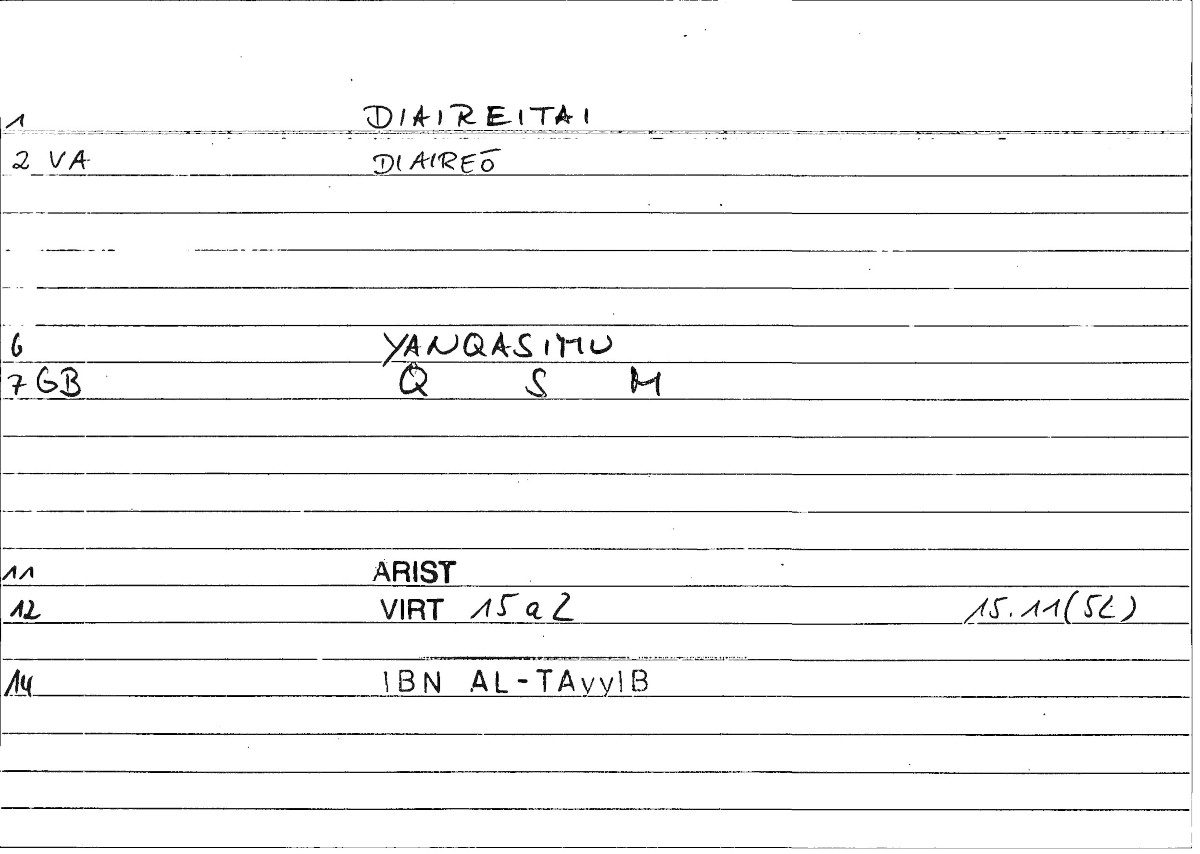 1 DIAIREITAI
2 VA DIAIREŌ
6 YANQASIMU
7 GB Q S M
11 ARIST
12 VIRT 15 a 2 15.11(5L)
14 IBN AL-TAyyIB